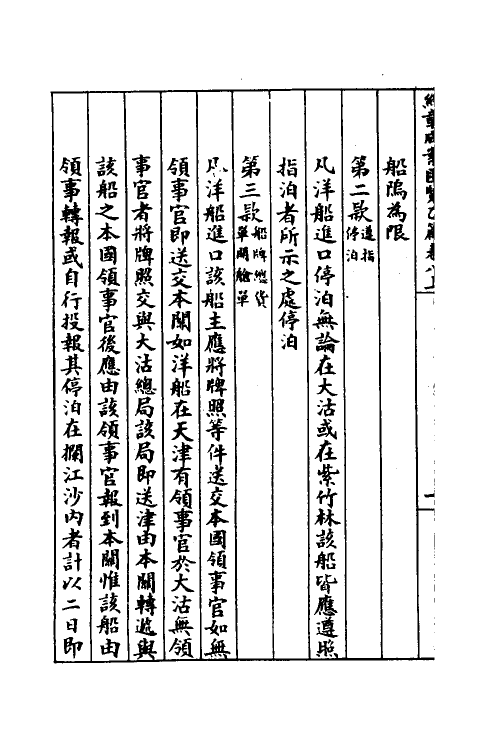 船隖為限
第二款遵指停泊
凡洋船進口停泊無論在大沽或在紫竹林該船皆應遵照
指泊者所示之處停泊
第三款船牌總貨單開艙單
凡洋船進口該船主應將牌照等件送交本國領事官如無
領事官即送交本關如洋船在天津有領事官於大沽無領
事官者將牌照交與大沽總局該局即送津由本關轉遞與
該船之本國領事官後應由該領事官報到本關惟該船由
領事轉報或自行投報其停泊在攔江沙內者計以二日即